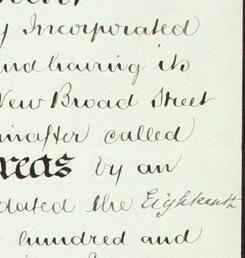 y Incorporated
nd having its
New Broad Street
inafter called
reas by an
dated the Eighteenth
hundred and